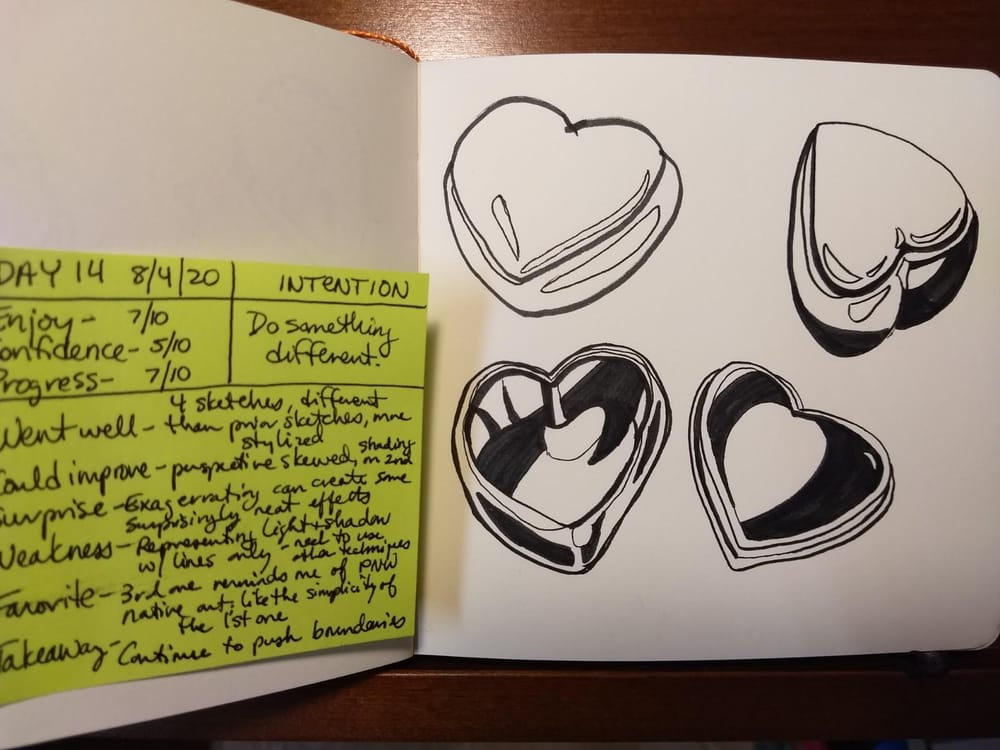 DAY 14 8/4/20
INTENTION
Enjoy- 7/10
Confidence- 5/10
Progress- 7/10
Do something
different.
Went well - 4 sketches, different
than prior sketches, more
stylized
Could improve - perspective skewed, shading on 2nd
Surprise - Exaggerating can create some
surprisingly neat effects
Weakness - Representing light + shadow
w/ lines only - need to use
other techniques
Favorite - 3rd one reminds me of PNW
native art. Like the simplicity of
the 1st one
Takeaway - Continue to push boundaries